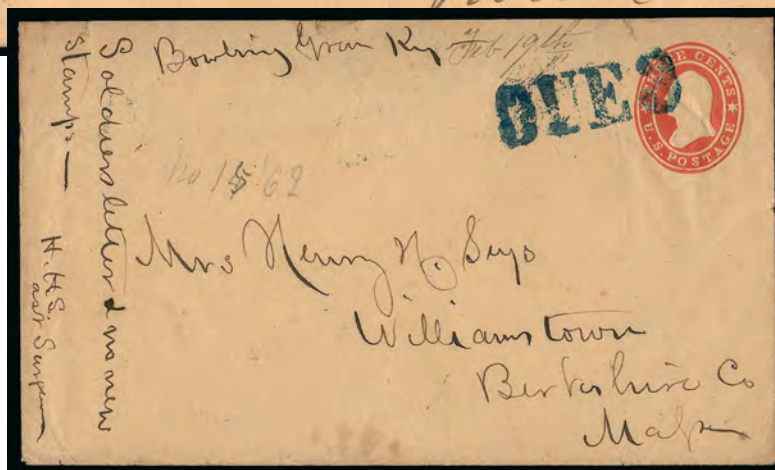 Bowling Green Ky Feb 19th
DUE 3
THREE CENTS
U.S. POSTAGE
Soldiers letter & no new
stamps —
H. H. S.
asst Surgeon
No 15 '62
Mrs Henry H. Seys
Williamstown
Berkshire Co
Mass